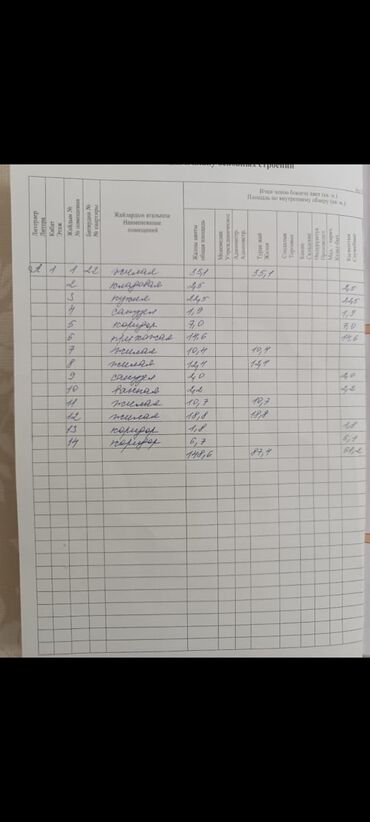 основных строений
Ички ченов боюнча аянт (кв. м.)
Площадь по внутреннему обмеру (кв. м.)
Литерлер
Литера
Кабат
Этаж
Жайдын №
№ помещения
Батирдин №
№ квартиры
Жайлардын аталышы
Наименование
помещений
Жалпы аянты
общая площадь
Турак жай
Жилая
Соодалык
Торговые
Складские
Кызматтык
Служебные
А 1 1 22 жилая 35,1 35,1
2 кладовая 2,5 2,5
3 кухня 22,5 22,5
4 санузел 1,9 1,9
5 коридор 7,0 7,0
6 прихожая 14,6 14,6
7 жилая 10,4 10,4
8 жилая 12,4 12,4
9 санузел 2,0 2,0
10 ванная 2,2 2,2
11 жилая 10,7 10,7
12 жилая 18,8 18,8
13 коридор 1,8 1,8
14 коридор 6,7 6,7
148,6 87,4 61,2